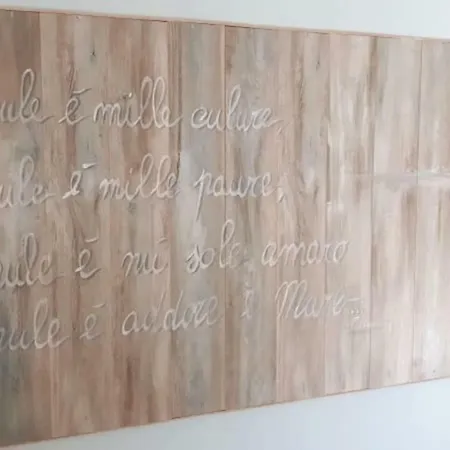 ule é mille culure,
ule é mille paure,
ule é nu sole amaro
ule é addore é Mare